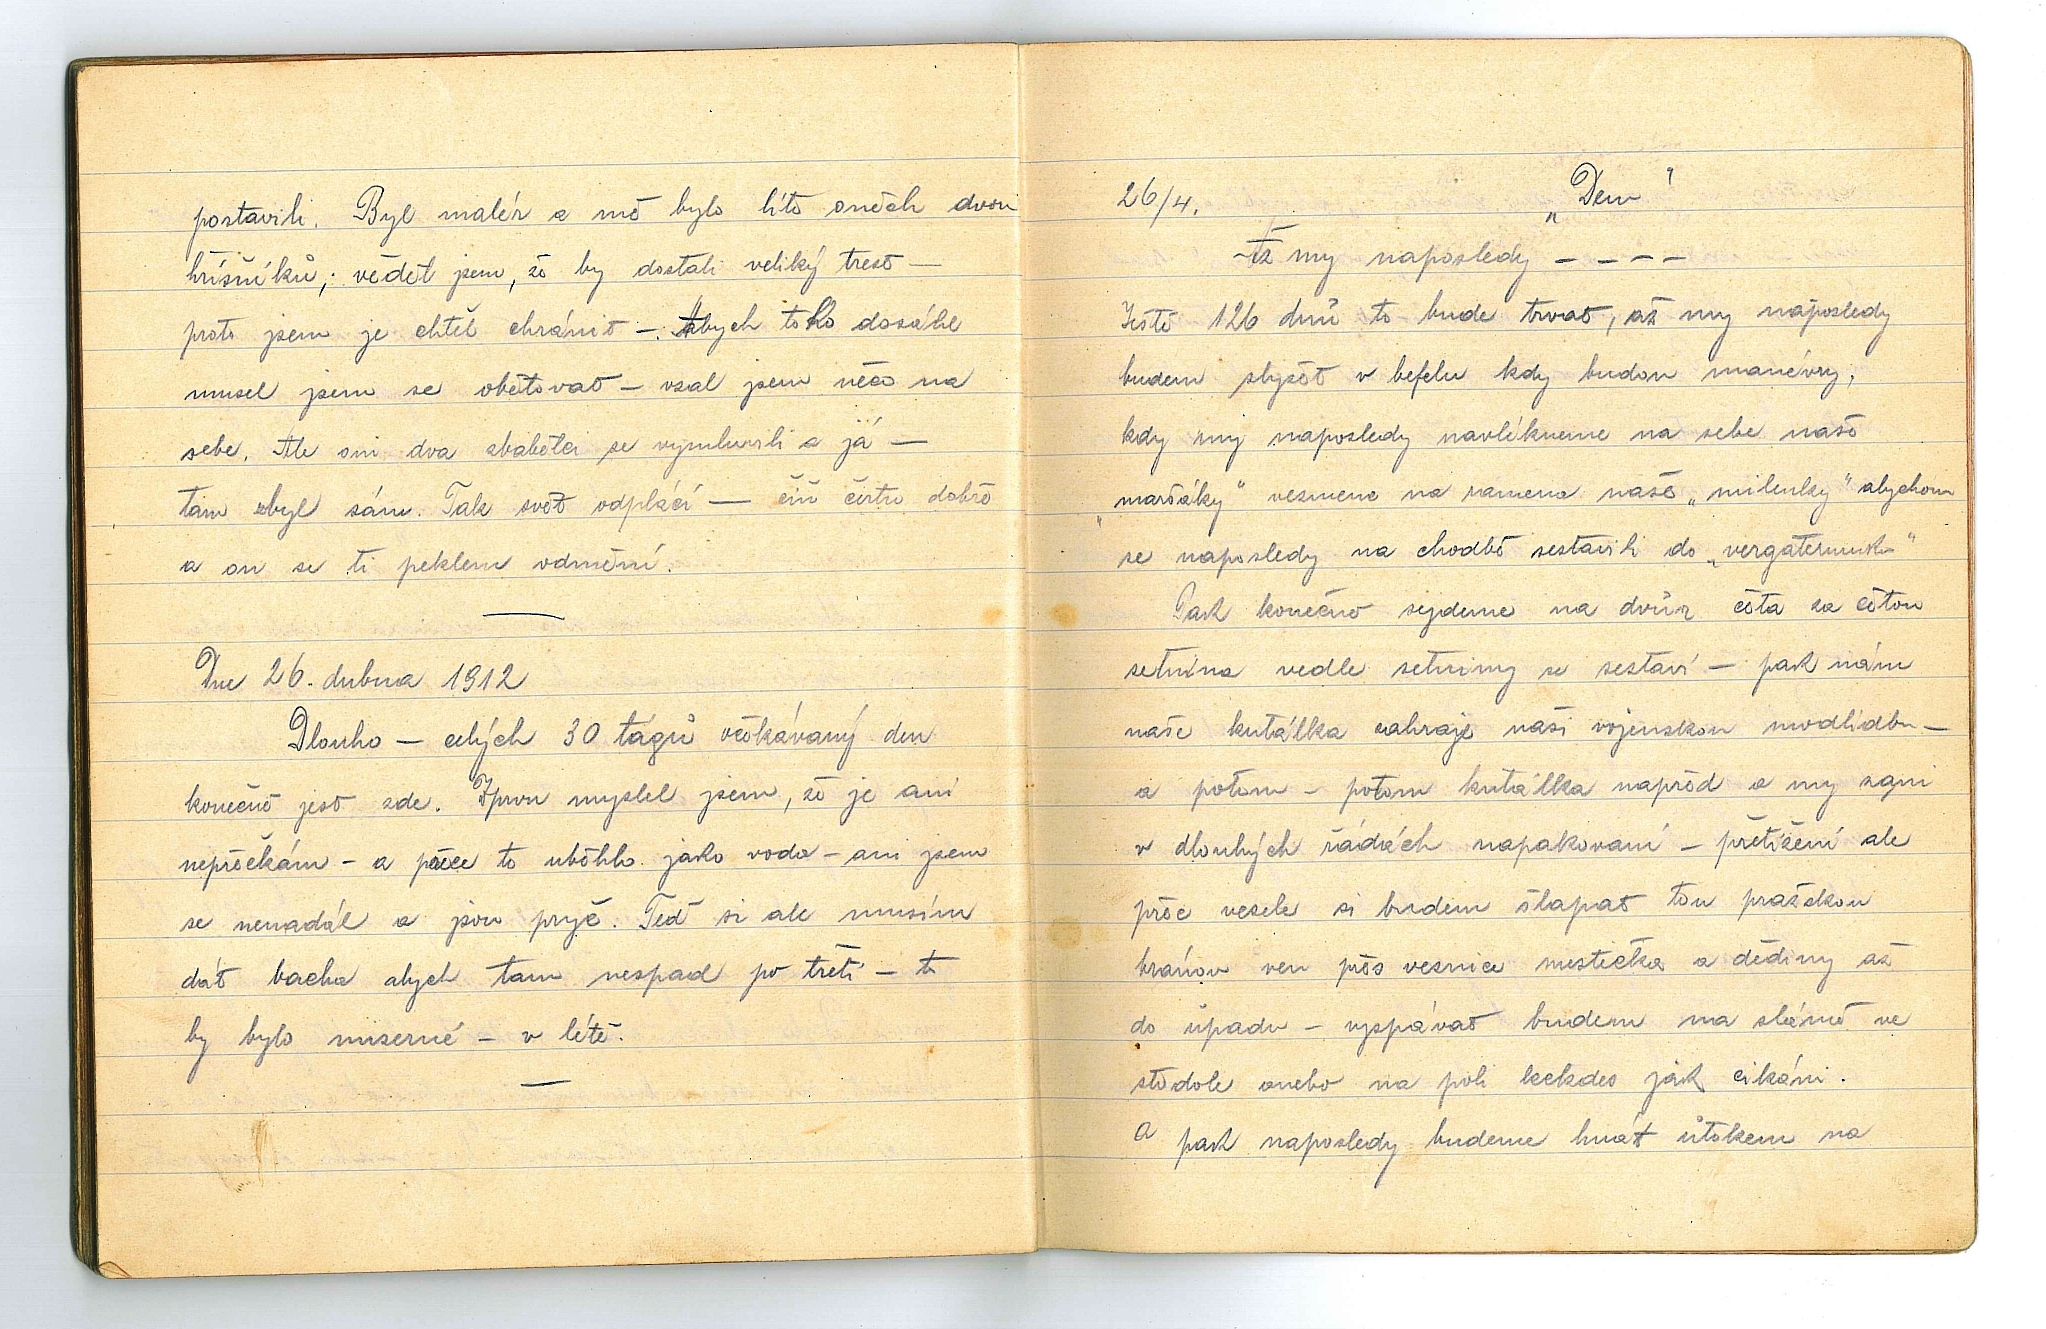 postavili. Byl malér a mě bylo líto oněch dvou
hříšníků; věděl jsem, že by dostali veliký trest —
proto jsem je chtěl chránit —. Abych toho dosáhl
musel jsem se obětovat — vzal jsem něco na
sebe. Ale oni dva zbabělci se vymluvili a já —
tam zbyl sám. Tak svět odplácí — čiň čertu dobře
a on se ti peklem odmění.
Dne 26. dubna 1912
Dlouho — celých 30 tágů očekávaný den
konečně jest zde. Zprvu myslel jsem, že je ani
nepřečkám — a přece to uběhlo jako voda — ani jsem
se nenadál a jsou pryč. Teď si ale musím
dát bacha abych tam nespad po třetí — to
by bylo miserné — v létě.
26/4.
„Den"
Až my naposledy – – – –
Ještě 126 dnů to bude trvat, až my naposledy
budem slyšet v befelu kdy budou manévry,
kdy my naposledy navlékneme na sebe naše
„maršáky" vezmene na ramena naše „milenky" abychom
se naposledy na chodbě sestavili do „vergaterunku"
Pak konečně sejdeme na dvůr četa za četou
setnina vedle setniny se sestaví — pak nám
naše kutálka zahraje naši vojenskou modlidbu —
a potom – potom kutálka napřed a my za ni
v dlouhých řádách napakovaní – přetížení ale
přec vesele si budem šlapat tou pražskou
bránou ven přes vesnice mestečka a dědiny až
do úpadu – vyspávat budem na slámě ve
stodole anebo na poli leckdes jak cikáni.
A pak naposledy budeme hnát útokem na